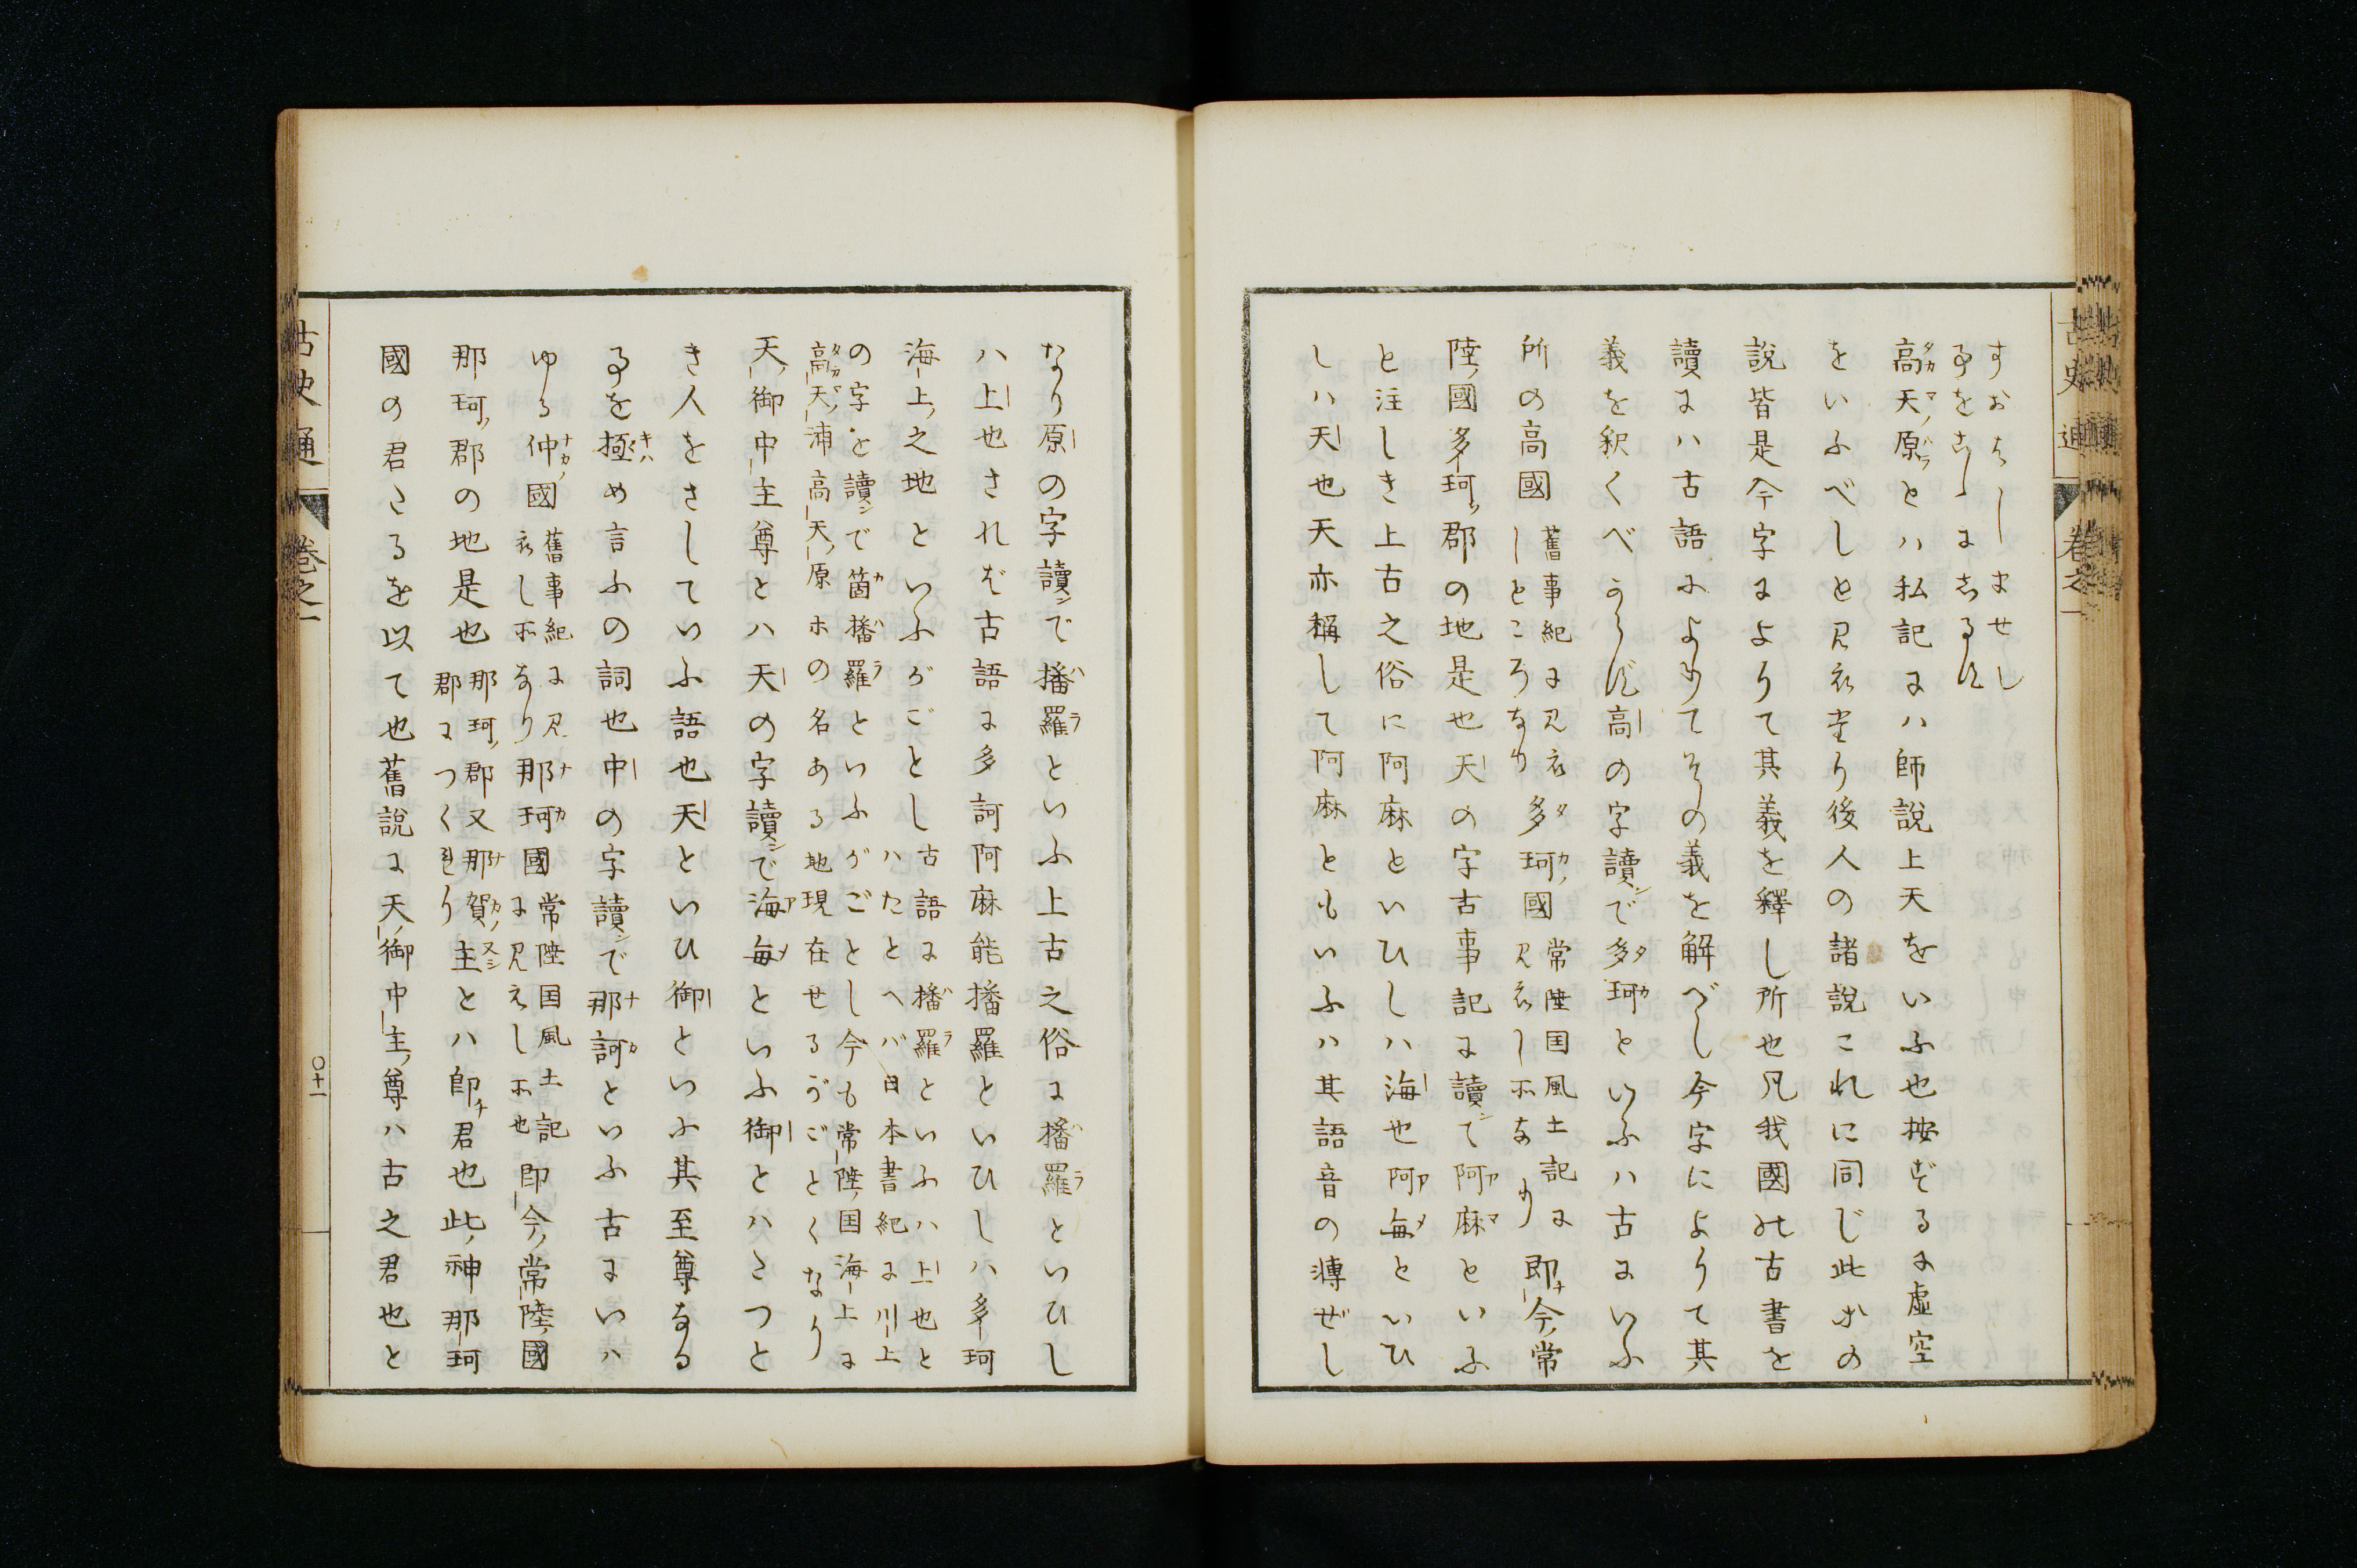 古史通 卷之一
すおはしませし
事をこゝにしるす
高天原とハ私記にハ師說上天をいふ也按ずるに虛空
をいふべしと見えたり後人の諸說これに同じ此等の
說皆是今字によりて其義を釋し所也凡我國の古書を
讀にハ古語によりてその義を解べし今字によりて其
義を釈くべからず高の字讀で多珂といふハ古にいふ
所の高國
舊事紀に見え
しところなり
多珂國
常陸国風土記に
見えし所なり
即今常
陸國多珂郡の地是也天の字古事記に讀て阿麻といふ
と注しき上古之俗に阿麻といひしハ海也阿毎といひ
しハ天也天亦稱して阿麻ともいふハ其語音の轉ぜし
なり原の字讀で播羅といふ上古之俗に播羅といひし
ハ上也されば古語に多訶阿麻能播羅といひしハ多珂
海上之地といふがごとし
古語に播羅といふハ上也と
ハたとへバ日本書紀に川上
の字を讀で箇播羅といふがごとし今も常陸国海上に
高天浦高天原ホの名ある地現在せるがごとくなり
天御中主尊とハ天の字讀で海毎といふ御とハたつと
き人をさしていふ語也天といひ御といふ其至尊なる
事を極め言ふの詞也中の字讀で那訶といふ古にいハ
ゆる仲國
舊事紀に見
えし所なり
那珂國
常陸国風土記
に見えし所也
即今常陸國
那珂郡の地是也
那珂郡又那賀
郡につくれり
主とハ即君也此神那珂
國の君たるを以て也舊說に天御中主尊ハ古之君也と
古史通 卷之一
〇十一